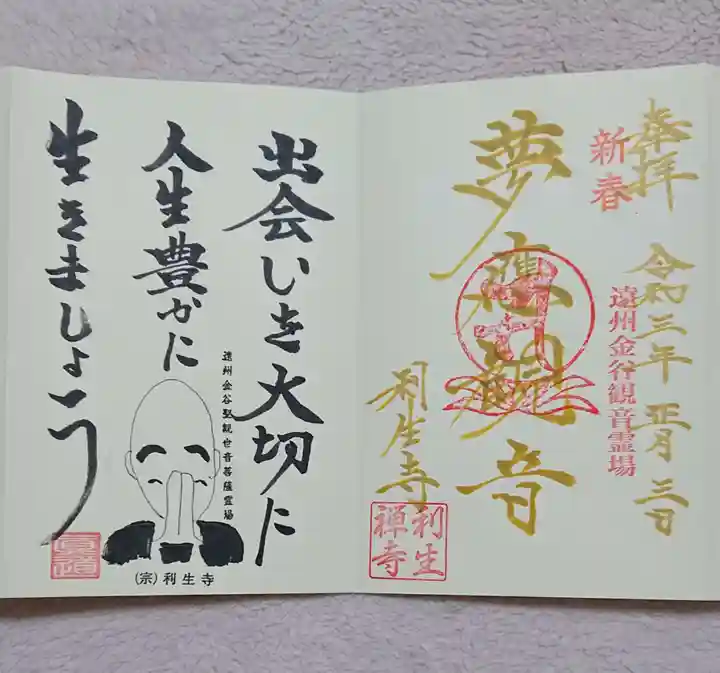 奉拝
新春
令和三年 正月 三日
遠州金谷観音霊場
夢應観音
利生寺
利生
禅寺
出会いを大切に
人生豊かに
生きましょう
遠州金谷聖観世音菩薩霊場
(宗)利生寺